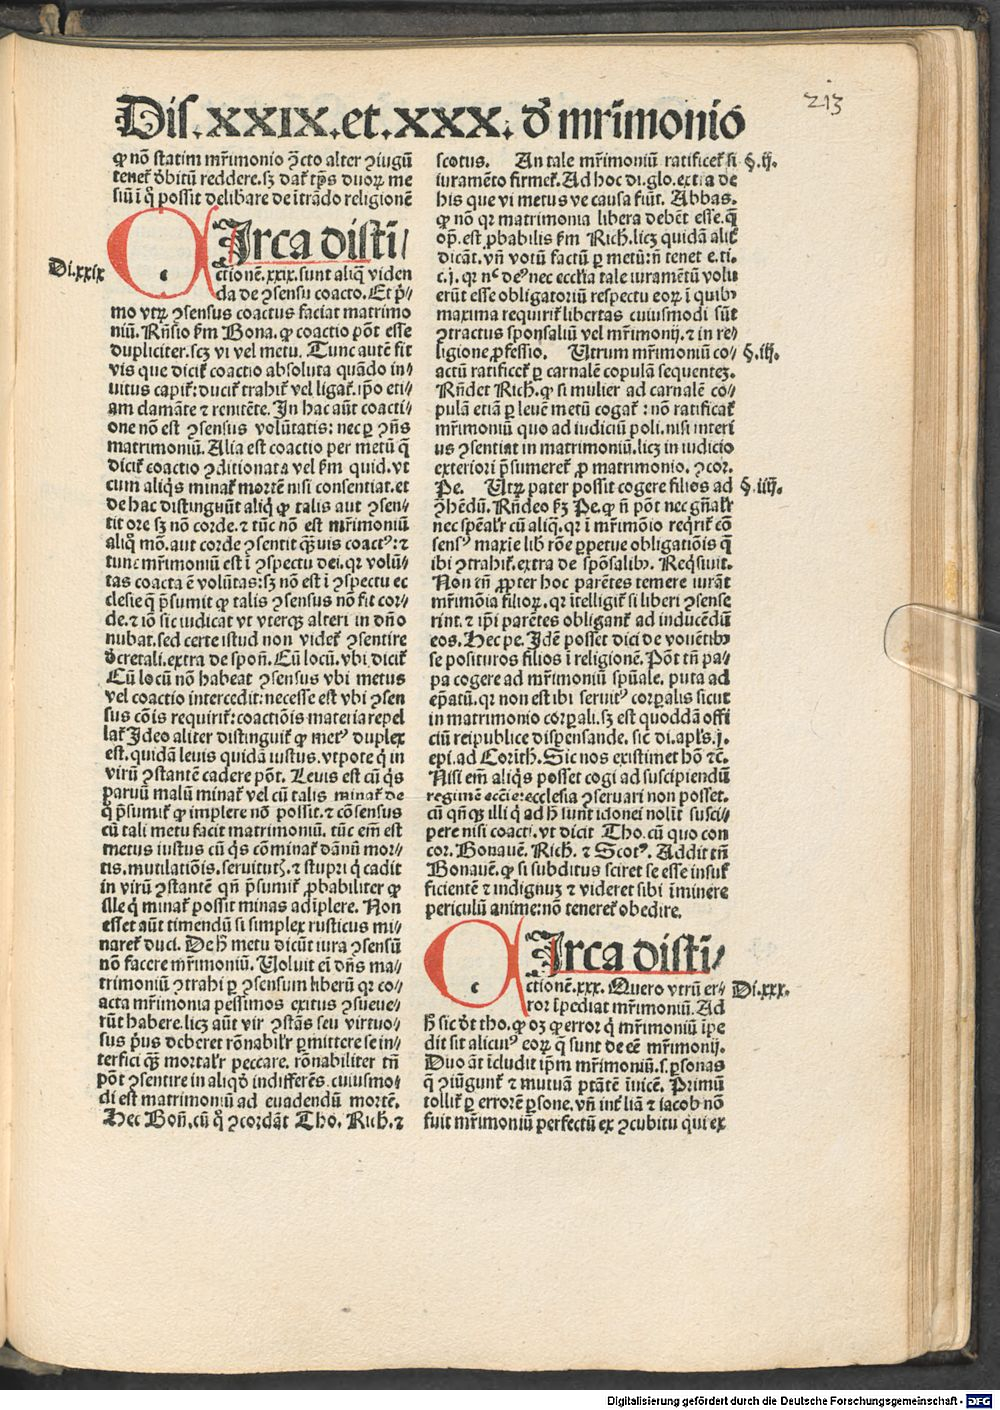 213
Dis. XXIX. et. XXX. ꝺ̄ mr̄imonio
ꝙ nō statim mr̄imonio ꝯ̄cto alter ꝯiugū
tenet᷑ ꝺ̄bitū reddere. sꝫ dat᷑ tꝑs duoꝝ me
siū i q̇ possit delibare de ītrādo religionē
Di. xxix
CIrca disti/
c
ctionē. xxix. sunt aliq̄ viden
da de ꝯsensu coacto. Et p̄/
mo vtꝝ ꝯsensus coactus faciat matrimo
niū. Rn̄sio ẜm Bona. ꝙ coactio pōt esse
dupliciter. scꝫ vi vel metu. Tunc autē fit
vis que dicit᷑ coactio absoluta quādo in/
uitus capit᷑: ducit᷑ trahit᷑ vel ligat᷑. ip̄o eti/
am clamāte ⁊ renitēte. In hac aūt coacti/
one nō est ꝯsensus volūtatis: nec ꝑ ꝯn̄s
matrimoniū. Alia est coactio per metū q̄
dicit᷑ coactio ꝯditionata vel ẜm quid. vt
cum aliq̇s minat᷑ mortē nisi consentiat. et
de hac distinguūt aliq̇ ꝙ talis aut ꝯsen/
tit ore sꝫ nō corde. ⁊ tūc nō est mr̄imoniū
aliq̇ mō. aut corde ꝯsentit qꝫuis coactꝰ: ⁊
tunc mr̄imoniū est i ꝯspectu dei. qꝛ volū/
tas coacta ē volūtas: sꝫ nō est i ꝯspectu ec
clesie q̄ p̄sumit ꝙ talis ꝯsensus nō fit cor/
de. ⁊ iō sic iudicat vt vterqꝫ alteri in dn̄o
nubat. sed certe istud non videt᷑ ꝯsentire
ꝺ̄cretali. extra de spon̄. Cū locū. vbi dicit᷑
Cū locū nō habeat ꝯsensus vbi metus
vel coactio intercedit: necesse est vbi ꝯsen
sus cōis requirit᷑: coactiōis materia repel
lat᷑ Ideo aliter distinguit᷑ ꝙ metꝰ duplex
est. quidā leuis quidā iustus. vtpote q̇ in
virū ꝯstantē cadere pōt. Leuis est cū q̇s
paruū malū minat᷑ vel cū talis minat᷑ de
q̇ p̄sumit᷑ ꝙ implere nō possit. ⁊ cōsensus
cū tali metu facit matrimoniū. tūc em̄ est
metus iustus cū q̇s cōminat᷑ dānū mor/
tis. mutilatiōis. seruitutꝭ. ⁊ stupri q̇ cadit
in virū ꝯstantē qn̄ p̄sumit᷑ ꝓbabiliter ꝙ
ille q̇ minat᷑ possit minas adīplere. Non
esset aūt timendū si simplex rusticus mi/
naret᷑ duci. De h̄ metu dicūt iura ꝯsensū
nō facere mr̄imoniū. Noluit ei dn̄s ma/
trimoniū ꝯtrahi ꝑ ꝯsensum liberū qꝛ co/
acta mr̄imonia pessimos exitus ꝯsueue/
rūt habere. licꝫ aūt vir ꝯstās seu virtuo/
sus p̄us deberet rōnabil'r ꝑmittere se in/
terfici qꝫ mortal'r peccare. rōnabiliter tn̄
pōt ꝯsentire in aliqd̄ indifferēs. cuiusmo/
di est matrimoniū ad euadendū mortē.
Hec Bon̄. cū q̇ ꝯcordāt Tho. Rich. ⁊
scotus. An tale mr̄imoniū ratificet᷑ si
§. ij.
iuramēto firmet᷑. Ad hoc di. glo. extra de
his que vi metus ve causa fiūt. Abbas.
ꝙ nō qꝛ matrimonia libera debēt esse. q̄
op̄. est ꝓbabilis ẜm Rich. licꝫ quidā alit᷑
dicāt. vn̄ votū factū ꝑ metū: vn̄ tenet e. ti.
c. j. qꝛ nᶜ deꝰ nec ecclīa tale iuramētū volu
erūt esse obligatoriū respectu eoꝝ i quibꝰ
maxima requirit᷑ libertas cuiusmodi sūt
ꝯtractus sponsaliū vel mr̄imonij. ⁊ in re/
ligione ꝓfessio. Utrum mr̄imoniū co/
§. iij.
actū ratificet᷑ ꝑ carnalē copulā sequentez.
Rn̄det Rich. ꝙ si mulier ad carnalē co/
pulā etiā ꝑ leuē metū cogat᷑: nō ratificat᷑
mr̄imoniū quo ad iudiciū poli. nisi interi
us ꝯsentiat in matrimoniū. licꝫ in iudicio
exteriori p̄sumeret᷑ ꝓ matrimonio. ꝯcor.
Pe. Utꝝ pater possit cogere filios ad
§. iiij.
ꝯ̄hēdū. Rn̄deo ẜꝫ Pe. ꝙ n̄ pōt nec gn̄al'r
nec spēal'r cū aliq̇. qꝛ i mr̄imōio req̇rit᷑ cō
sensꝰ maxīe lib̄ rōe ꝑpetue obligatiōis q̄
ibi ꝯtrahit᷑. extra de spōsalibꝰ. Req̇siuit.
Non tn̄ ꝓpter hoc parētes temere iurāt
mr̄imōia filioꝝ. qꝛ ītelligit᷑ si liberi ꝯsense
rint. ⁊ ip̄i parētes obligant᷑ ad inducēdū
eos. Hec pe. Idē posset dici de vouētibꝰ
se posituros filios i religionē. Pōt tn̄ pa/
pa cogere ad mr̄imoniū spūale. puta ad
ep̄atū. qꝛ non est ibi seruitꝰ corꝑalis sicut
in matrimonio corꝑali. sꝫ est quoddā offi
ciū reipublice dispensande. sic̄ di. apl's. j.
epi. ad Corīth. Sic nos existimet hō ⁊c̄.
Nisi em̄ aliq̇s posset cogi ad suscipiendū
regimē ecc̄ie: ecclesia ꝯseruari non posset.
cū qn̄qꝫ illi q̇ ad h̄ sunt idonei nolīt susci/
pere nisi coacti. vt dicit Tho. cū quo con
cor. Bonauē. Rich. ⁊ Scotꝰ. Addit tn̄
Bonauē. ꝙ si subditus sciret se esse insuf
ficientē ⁊ indignuꝫ ⁊ videret sibi īminere
periculū anime: nō teneret᷑ obedire.
CIrca disti/
c
ctionē. xxx. Quero vtrū er/
Di. xxx.
ror īpediat mr̄imoniū. Ad
h̄ sic ꝺ̄t tho. ꝙ oꝫ ꝙ error q̇ mr̄imoniū īpe
dit sit alicuiꝰ eoꝝ q̄ sunt de eē mr̄imonij.
Duo āt īcludit ip̄m mr̄imoniū. s. ꝑsonas
q̄ ꝯiūgunt᷑ ⁊ mutuā ptātē īuicē. Primū
tollit᷑ ꝑ errorē ꝑsone. vn̄ int᷑ liā ⁊ iacob nō
fuit mr̄imoniū perfectū ex ꝯcubitu qui ex
Digitalisierung gefördert durch die Deutsche Forschungsgemeinschaft - DFG